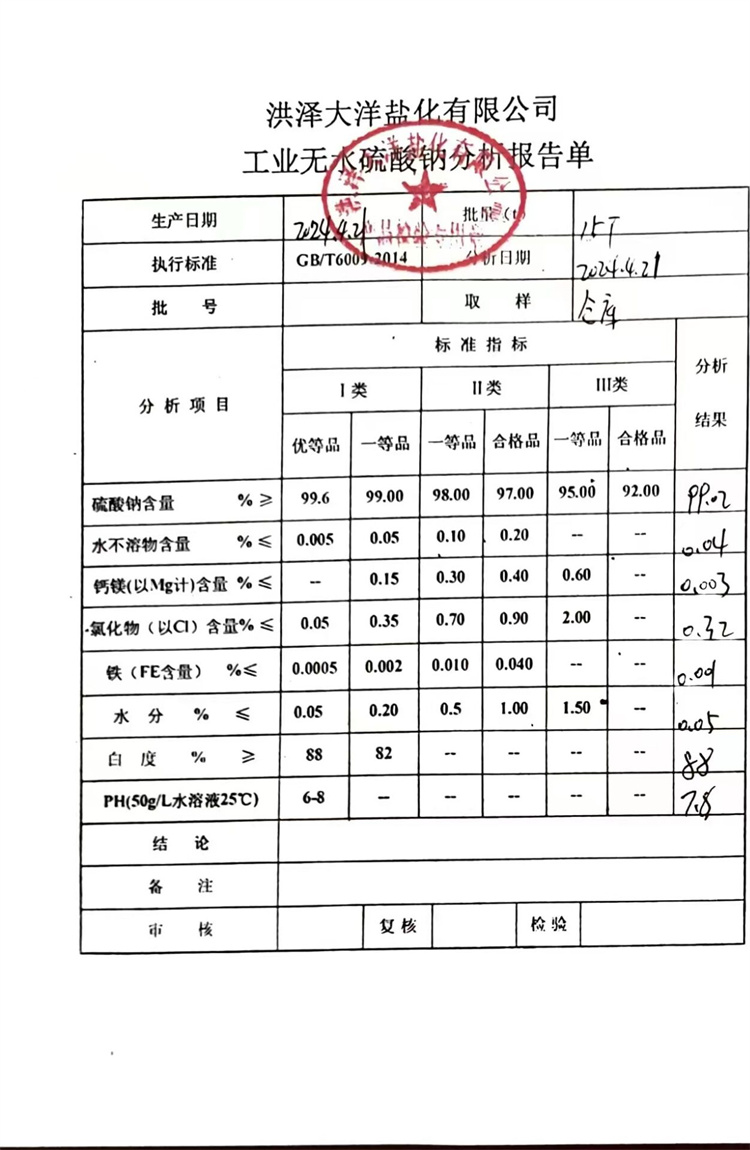 洪泽大洋盐化有限公司
工业无水硫酸钠分析报告单
生产日期 2024.4.21 批量（t） 15T
执行标准 GB/T6009-2014 分析日期 2024.4.21
批 号 取 样 仓库
分析项目 标准指标 分析结果
I类 II类 III类
优等品 一等品 一等品 合格品 一等品 合格品
硫酸钠含量 %≥ 99.6 99.00 98.00 97.00 95.00 92.00 99.02
水不溶物含量 %≤ 0.005 0.05 0.10 0.20 -- -- 0.04
钙镁(以Mg计)含量 %≤ -- 0.15 0.30 0.40 0.60 -- 0.003
氯化物（以Cl）含量%≤ 0.05 0.35 0.70 0.90 2.00 -- 0.32
铁（FE含量） %≤ 0.0005 0.002 0.010 0.040 -- --
水 分 % ≤ 0.05 0.20 0.5 1.00 1.50 -- 0.05
白 度 % ≥ 88 82 -- -- -- -- 88
PH(50g/L水溶液25℃) 6-8 -- -- -- -- -- 7.8
结 论
备 注
审 核 复核 检验